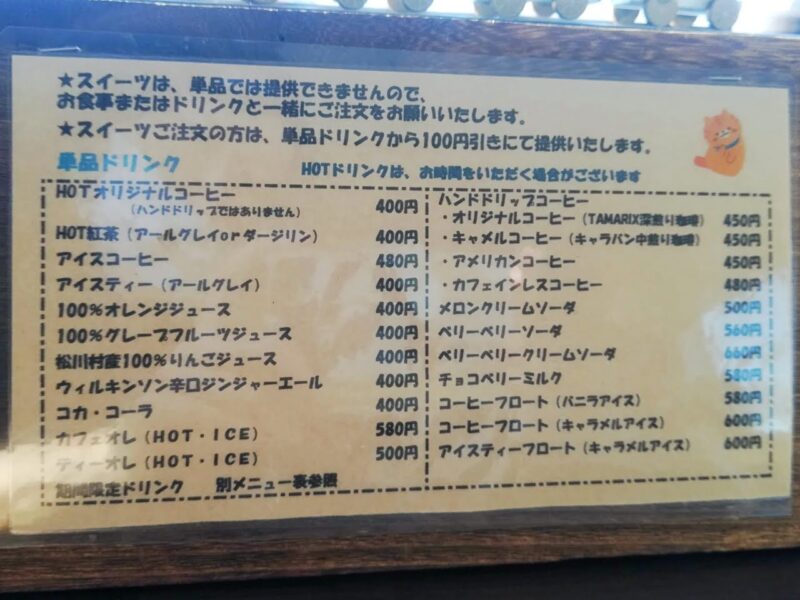 ★スイーツは、単品では提供できませんので、
お食事またはドリンクと一緒にご注文をお願いいたします。
★スイーツご注文の方は、単品ドリンクから100円引きにて提供いたします。
単品ドリンク HOTドリンクは、お時間をいただく場合がございます
HOTオリジナルコーヒー
(ハンドドリップではありません) 400円
HOT紅茶(アールグレイorダージリン) 400円
アイスコーヒー 480円
アイスティー(アールグレイ) 400円
100%オレンジジュース 400円
100%グレープフルーツジュース 400円
松川村産100%りんごジュース 400円
ウィルキンソン辛口ジンジャーエール 400円
コカ・コーラ 400円
カフェオレ(HOT・ICE) 580円
ティーオレ(HOT・ICE) 500円
期間限定ドリンク 別メニュー表参照
ハンドドリップコーヒー
・オリジナルコーヒー(TAMARIX深煎り珈琲) 450円
・キャメルコーヒー(キャラバン中煎り珈琲) 450円
・アメリカンコーヒー 450円
・カフェインレスコーヒー 480円
メロンクリームソーダ 500円
ベリーベリーソーダ 560円
ベリーベリークリームソーダ 660円
チョコベリーミルク 580円
コーヒーフロート(バニラアイス) 580円
コーヒーフロート(キャラメルアイス) 600円
アイスティーフロート(キャラメルアイス) 600円